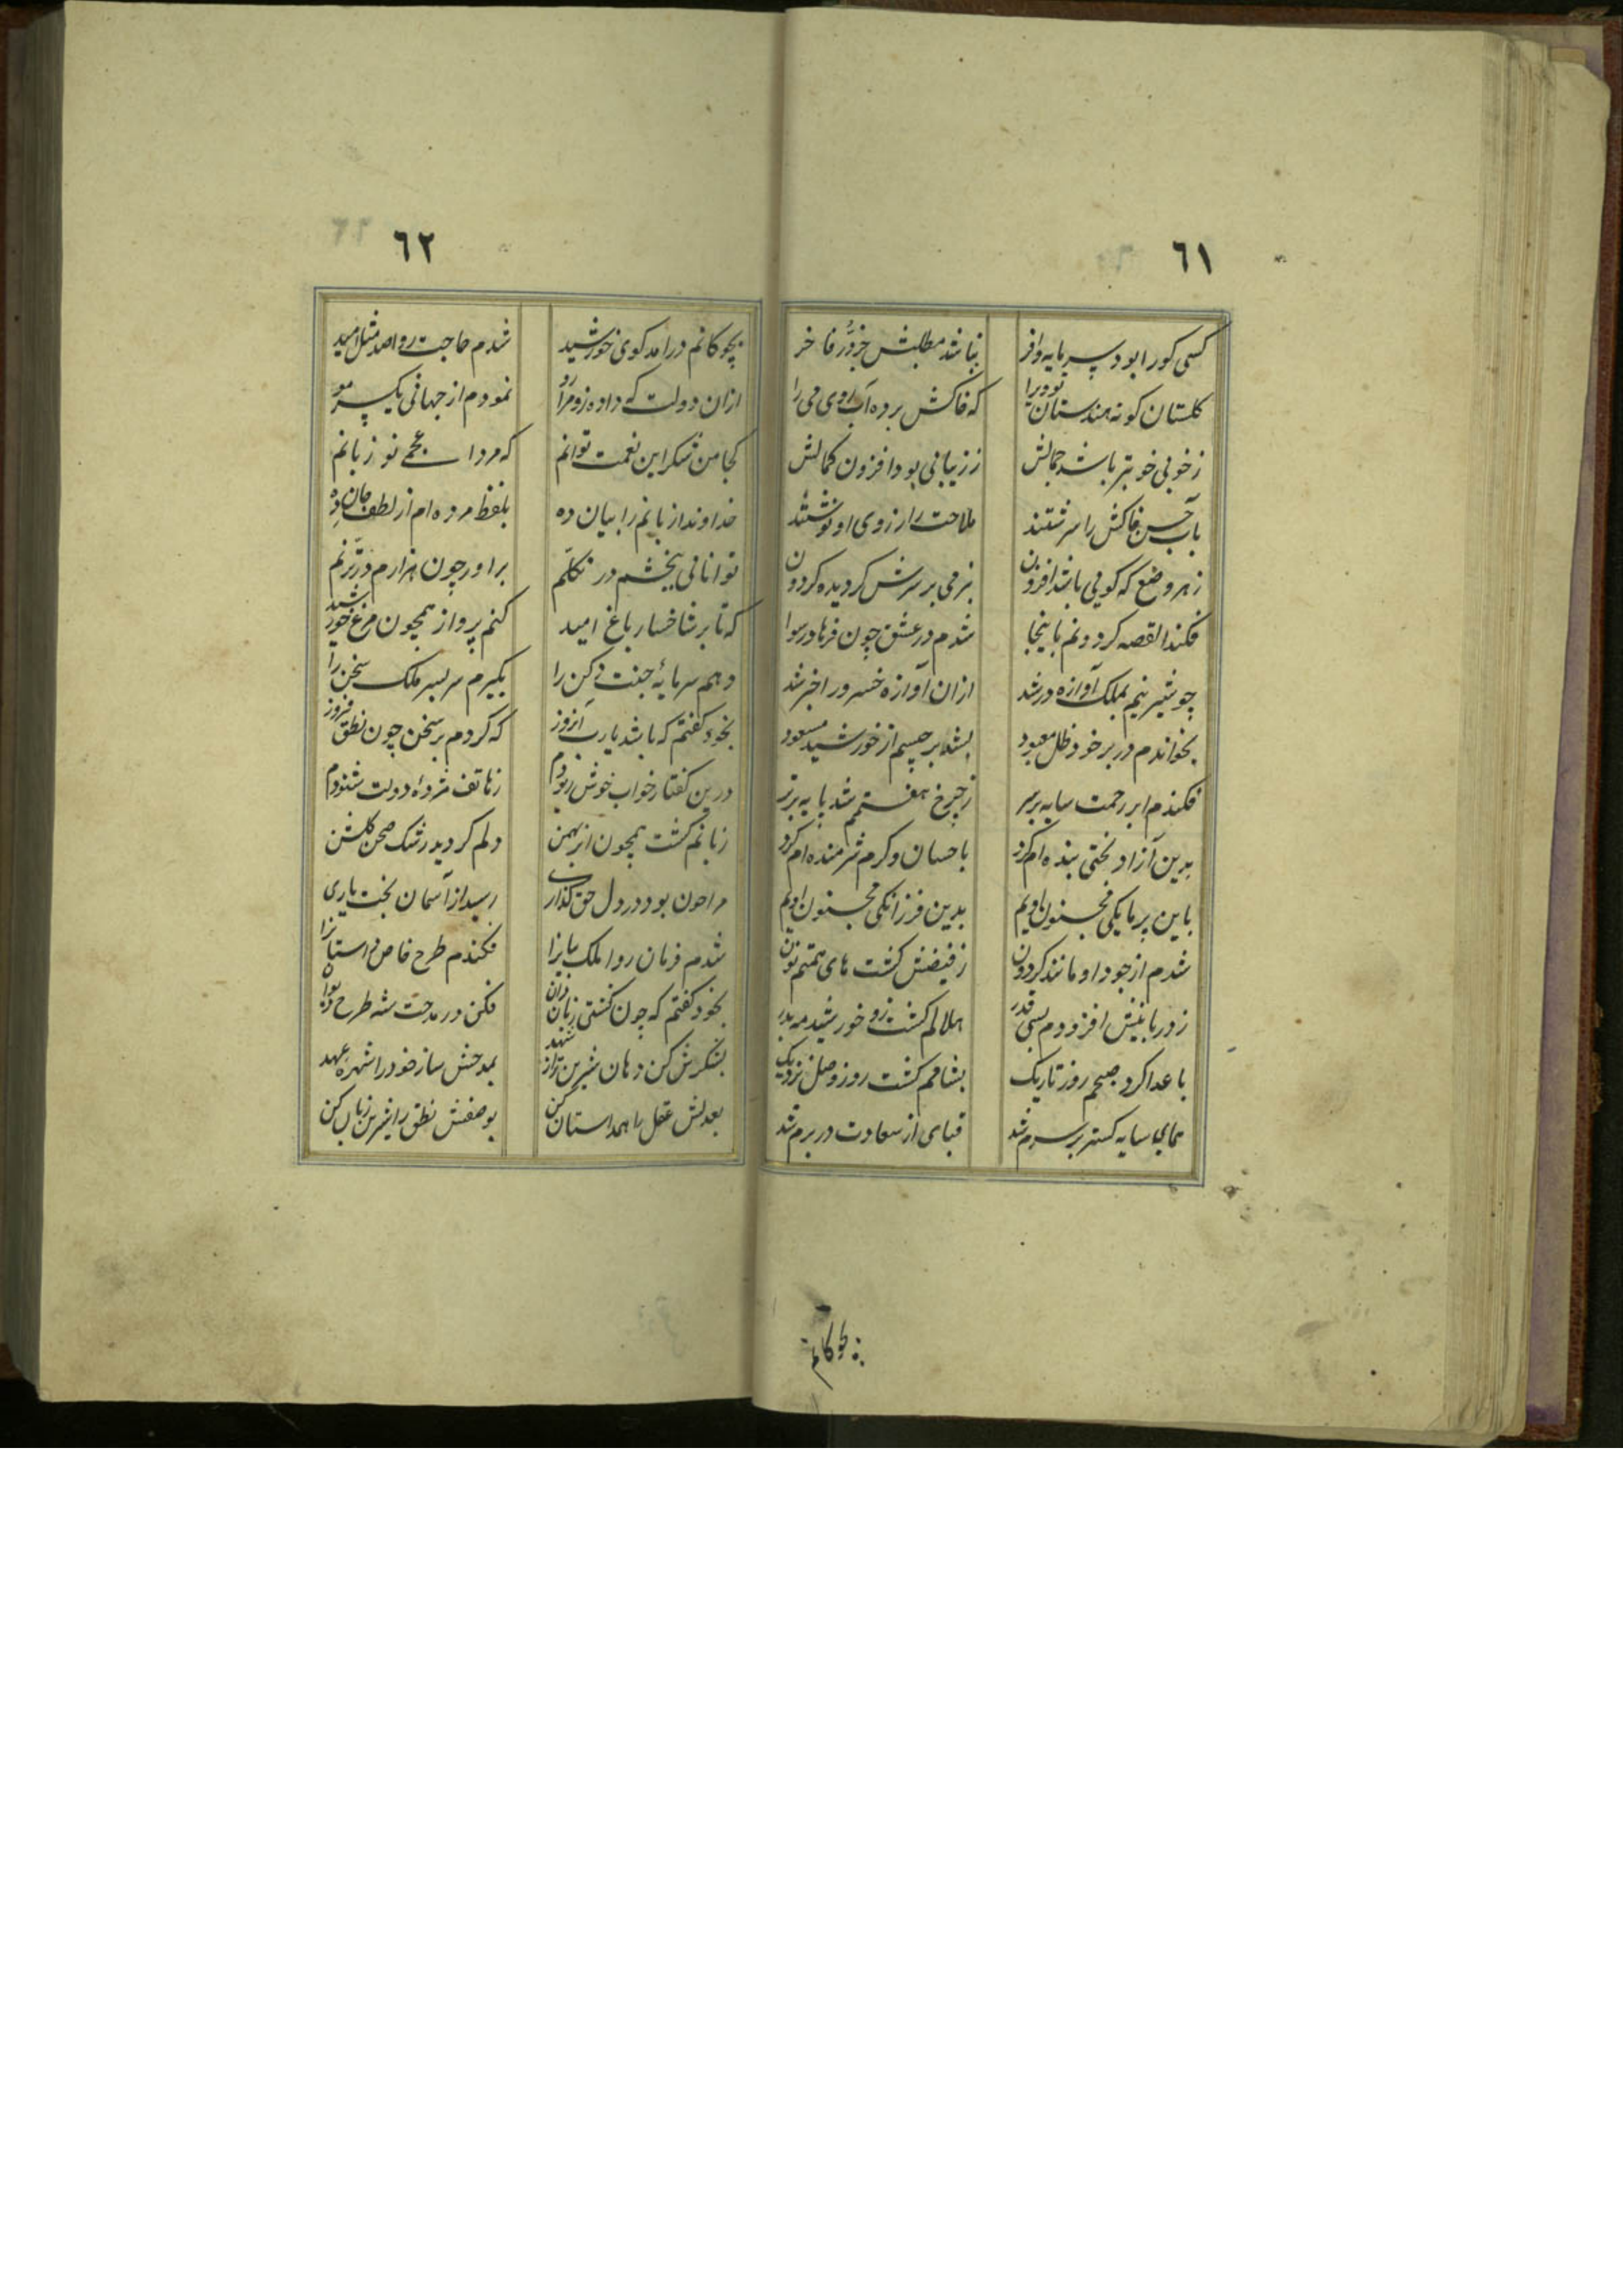 ٦١
کسی کورا بود سرمایه وافر نباشد مطلبش جز دُرّ فاخر
گلستان گونه هندستان بو ویرا که خاکش برده آب روی می را
ز خوبی خوبتر باشد جمالش ز زیبائی بود افزون کمالش
بآب حسن خاکش را سرشتند ملاحت را ز روی او نوشتند
ز هر وضع که گویی باشد افزون بنرمی بر سرش گردیده گردون
فکند القصه گردونم باینجا شدم در عشق چون فرهاد رسوا
چو شیرینم بملک آوازه در شد ازان آوازه خسرو را خبر شد
بخواندم در بر خود ظل معبود بشد برجیسم از خورشید مسعود
فکندم ابر رحمت سایه بر سر ز چرخ هفتمم شد پایه برتر
بدین آزاد بختی بنده ام کرد باحسان و کرم شرمنده ام کرد
باین پرمایکی مجنون اویم بدین فرزانکی مجنون اویم
شدم از جود او مانند گردون ز فیضش گشت های همتم نون
ز دریا بخشش افزودم بسی قدر هلالم گشت زو خورشید مه بدر
باعدا کرد صبحم روز تاریک بشامم گشت روز وصل نزدیک
همای سایه گستر بر سرم شد قبای از سعادت در برم شد
بچوکانم
٦٢
بچوکانم درامد گوی خورشید شدم حاجت روا صد مثل امید
ازان دولت که داده زو مرا رو نمودم از جهانی یک سر مو
کجا من شکر این نعمت توانم که مرد اعجمی نو زبانم
خداوندا زبانم را بیان ده بلفظ مرده ام از لطف جان ده
توانائی ببخشم در تکلّم براور چون هزارم در ترنّم
که تا بر شاخسار باغ امید کنم پرواز همچون مرغ خورشید
دهم سرمایهٔ جنت دکن را بگیرم سربسر ملک سخن را
بخود گفتم که باشد یارب آنروز که کردم بر سخن چون نطق فیروز
درین گفتار خواب خوش ربودم ز هاتف مژدهٔ دولت شنودم
زبانم گشت همچون ابر بهمن دلم گردید رشک صحن گلشن
مرا چون بود در دل حق گذاری رسید از آسمان بخت یاری
شدم فرمان روا ملک بیانرا فکندم طرح خاص داستانرا
بخود گفتم که چون گشتی زبان دان فکن در مدحت شه طرح
بشکرش کن دهان شیرین تر از شهد بمدحش ساز خود را شهره عهد
بعدلش عقل را همداستان کن بوصفش نطق را شیرین زبان کن